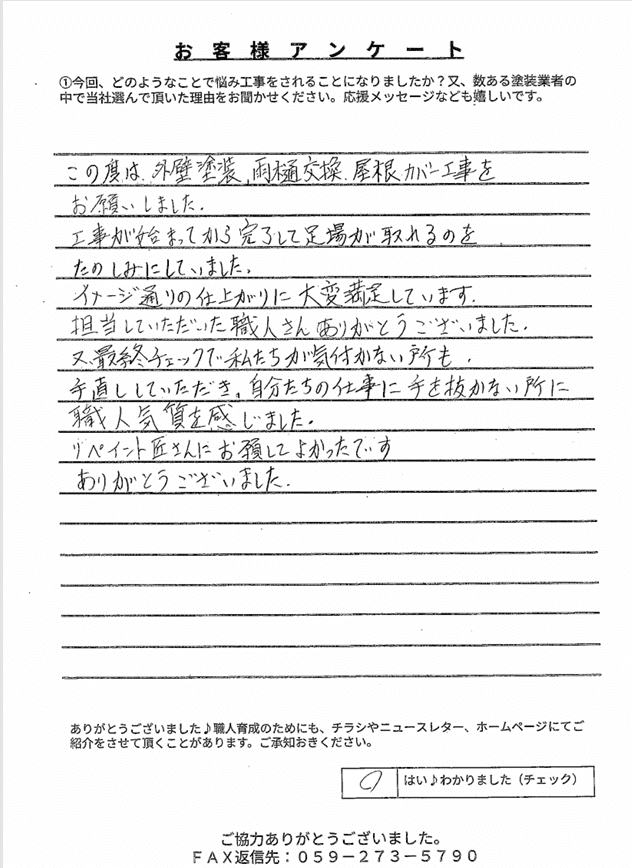 お客様アンケート
①今回、どのようなことで悩み工事をされることになりましたか？又、数ある塗装業者の
中で当社選んで頂いた理由をお聞かせください。応援メッセージなども嬉しいです。
この度は、外壁塗装、雨樋交換、屋根カバー工事を
お願いしました.
工事が始まってから完了して足場が取れるのを
たのしみにしていました.
イメージ通りの仕上がりに大変満足しています.
担当していただいた職人さんありがとうございました.
又、最終チェックで私たちが気付かない所も、
手直ししていただき、自分たちの仕事に手を抜かない所に
職人気質を感じました.
リペイント匠さんにお願してよかったです
ありがとうございました.
ありがとうございました♪職人育成のためにも、チラシやニュースレター、ホームページにてご
紹介をさせて頂くことがあります。ご承知おきください。
はい♪わかりました（チェック）
ご協力ありがとうございました。
ＦＡＸ返信先：０５９－２７３－５７９０